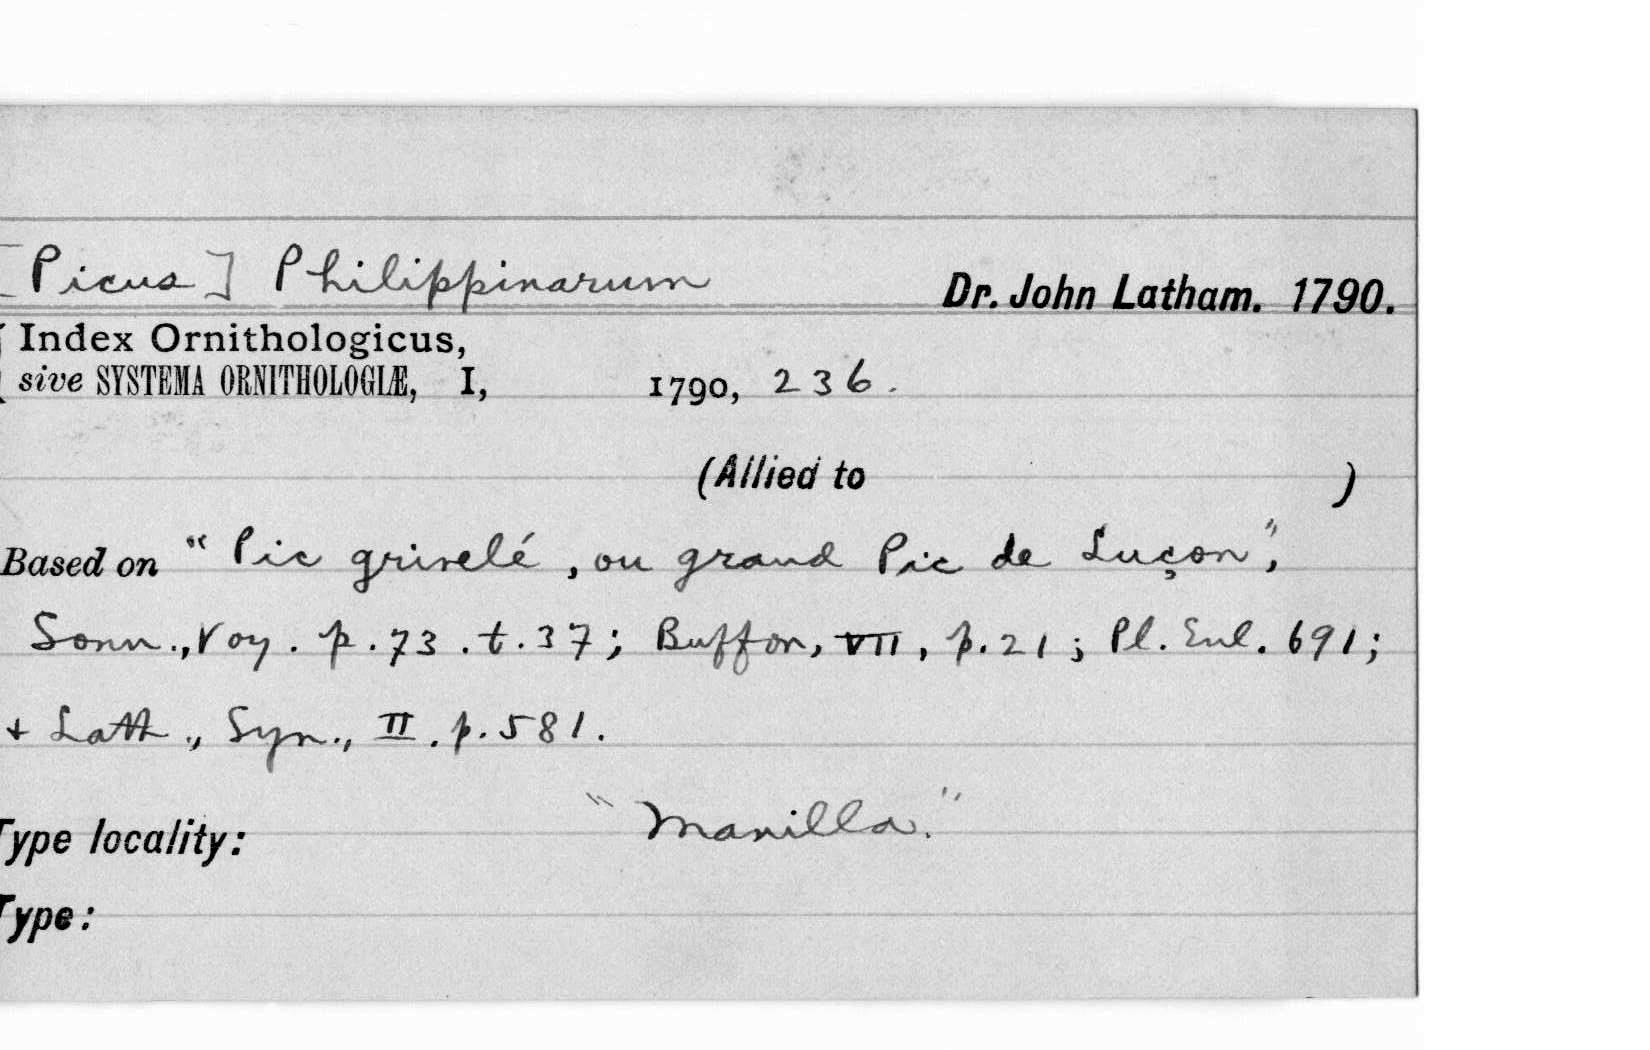 [Picus] Philippinarum Dr. John Latham. 1790.
Index Ornithologicus,
sive SYSTEMA ORNITHOLOGIÆ, I, 1790, 236.
(Allied to )
Based on "Pic grivelé, ou grand Pic de Luçon",
Sonn., Voy. p. 73. t. 37; Buffon, VII, p. 21; Pl. Enl. 691;
+ Lath., Syn., II. p. 581.
"Manilla."
Type locality:
Type: